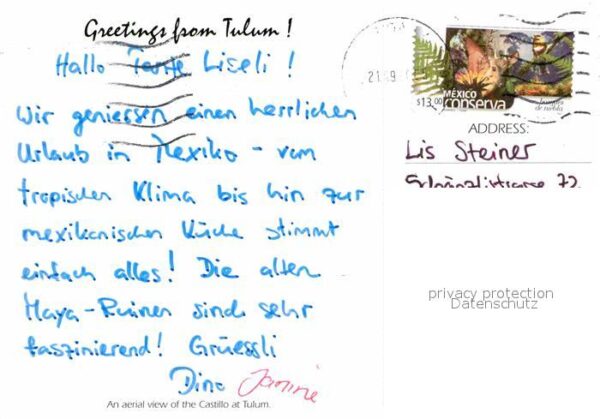 Greetings from Tulum!
Hallo Tante Liseli!
Wir geniessen einen herrlichen
Urlaub in Mexiko - vom
tropischen Klima bis hin zur
mexikanischen Küche stimmt
einfach alles! Die alten
Maya-Ruinen sind sehr
faszinierend! Grüessli
Dino Janine
An aerial view of the Castillo at Tulum.
21 09
MÉXICO
$13.00 conserva
ADDRESS:
Lis Steiner
72
privacy protection
Datenschutz